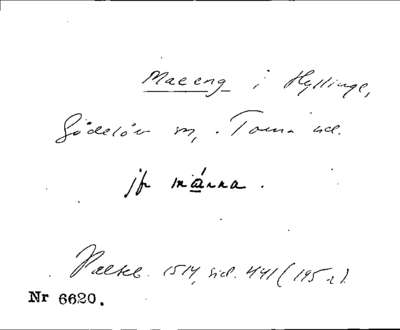 Maeeng i Hyllinge,
Gödelöv sn, Torna hd.
jfr mánna.
Palteb. 1514, sid. 441 (195 a).
Nr 6620.